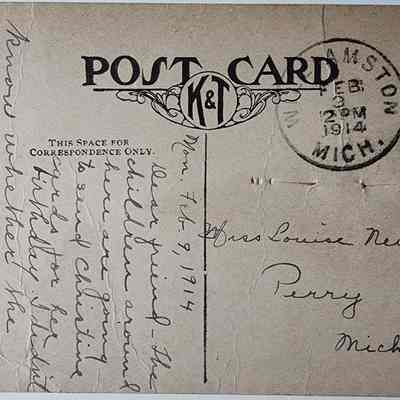 POST CARD
K&T
THIS SPACE FOR
CORRESPONDENCE ONLY.
WILLIAMSTON
FEB
2 PM
1914
MICH.
Mon. Feb. 9, 1914
Dear friend - The
children around
here are going
to send Christine
cards for her
birthday I didn't
know whether she
Miss Louise
Perry
Mich